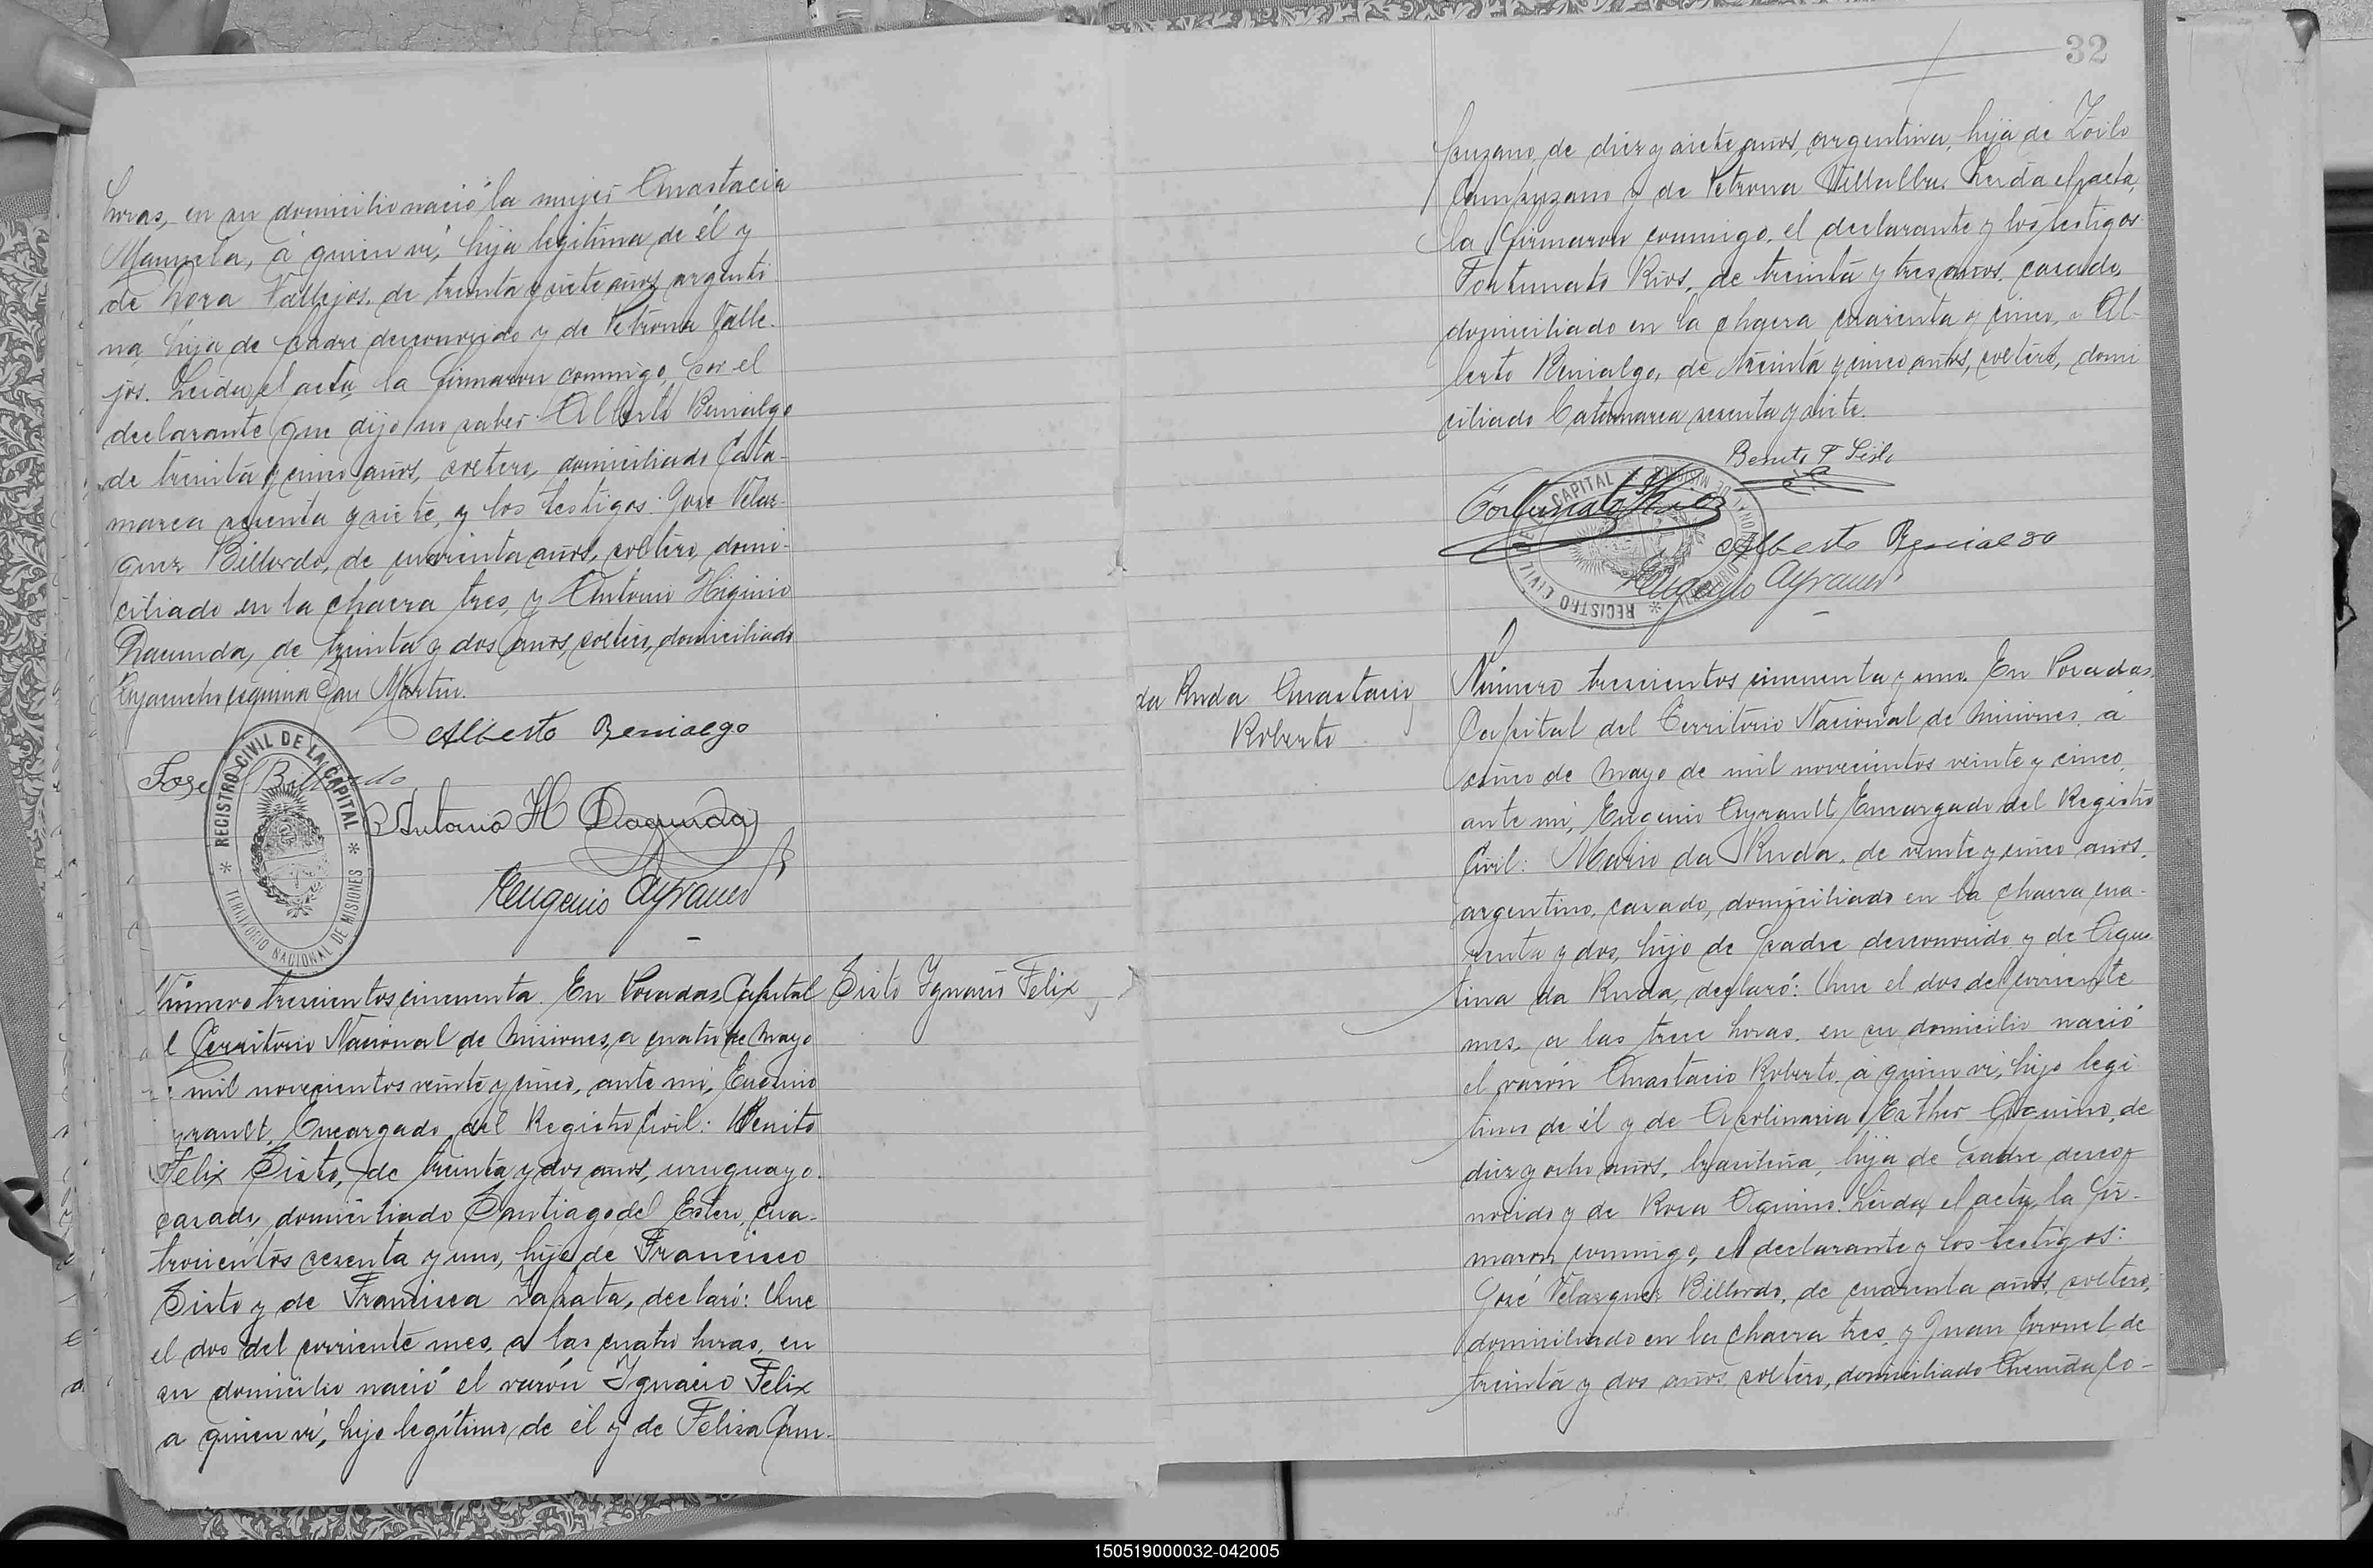 horas, en su domicilio nació la mujer Anastacia
Manuela, á quien ví, hija legítima de él y
de Dora Vallejos, de treinta y siete años, argenti
na, hija de padre desconocido y de Petrona Valle-
jos. Leída el acta, la firmaron conmigo, por el
declarante que dijo no saber Alberto Benialgo
de treinta y cinco años, soltero, domiciliado Cata-
marca sesenta y siete, y los testigos: José Velaz-
quez Billordo, de cuarenta años, soltero, domi-
ciliado en la chacra tres, y Antonio Higinio
Dacunda, de treinta y dos años, soltero, domiciliado
Ayacucho esquina San Martin.
Alberto Benialgo
Jose Billordo
Antonio H Dacunda
Eugenio Ayrault
REGISTRO CIVIL DE LA CAPITAL
TERRITORIO NACIONAL DE MISIONES
Número trescientos cincuenta. En Posadas Capital
l Territorio Nacional de Misiones, a cuatro de Mayo
mil novecientos veinte y cinco, ante mí, Eugenio
yrault, Encargado del Registro Civil: Benito
Felix Sisto, de treinta y dos años, uruguayo.
casado, domiciliado Santiago del Estero, cua-
trocientos sesenta y uno, hijo de Francisco
Sisto y de Francisca Zapata, declaró: Que
el dos del corriente mes, a las cuatro horas, en
su domicilio nació el varón Ignacio Felix
a quien ví, hijo legítimo de él y de Felisa Cam-
Sisto Ignacio Felix
32
puzano, de diez y siete años, argentina, hija de Zoilo
Campuzano y de Petrona Villalba. Leída el acta,
la firmaron conmigo, el declarante y los testigos
Fortunato Rios, de treinta y tres años, casado,
domiciliado en la chacra cuarenta y cinco, y Al-
berto Benialgo, de treinta y cinco años, soltero, domi
ciliado Catamarca sesenta y siete.
Benito F Sisto
Fortunato Rios
Alberto Benialgo
Eugenio Ayrault
REGISTRO CIVIL CAPITAL
da Ruda Anastacio
Roberto
Número trescientos cincuenta y uno. En Posadas,
Capital del Territorio Nacional de Misiones, a
cinco de Mayo de mil novecientos veinte y cinco,
ante mí, Eugenio Ayrault, Encargado del Registro
Civil: Mario da Ruda, de veinte y cinco años,
argentino, casado, domiciliado en la chacra cua-
renta y dos, hijo de padre desconocido y de Agus
tina da Ruda, declaró: Que el dos del corriente
mes, a las trece horas, en su domicilio nació
el varón Anastacio Roberto, á quien ví, hijo legi
timo de él y de Apolinaria Esther Aquino, de
diez y ocho años, brasileña, hija de padre desco
nocido y de Rosa Aquino. Leída el acta, la fir-
maron conmigo, el declarante y los testigos:
José Velazquez Billordo, de cuarenta años, soltero,
domiciliado en la chacra tres, y Juan Coronel de
treinta y dos años, soltero, domiciliado Avenida Co-
150519000032-042005